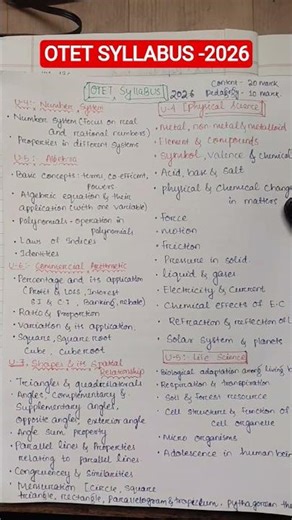 OTET SYLLABUS -2026
OTET, Syllabus
2026
Content - 20 mark
Pedagogy - 10 mark
U-4: Number System
• Number system (Focus on real
and rational numbers)
• Properties in different systems
U-5:
• Basic concepts: term, co efficient,
powers
• Algebraic equation & their
application (with one variable)
• Polynomials - operation in
polynomials
• Laws of Indices
• Identities
U-6: Commercial Arithmetic
• Percentage and its application
(Profit & Loss, Interest
SI & CI, Banking, rebate)
• Ratio & Proportion
• Variation & its application,
• Square, Square root
Cube, Cube root
Shapes & its Spatial
Relationship
• Triangles & quadrilaterals
• Angles, Complementary &
Supplementary angles,
opposite angles, exterior angle
• Angle sum property
• Parallel lines & Properties
relating to parallel lines
• Congruency & Similarities
• Mensuration [Circle, square
triangle, rectangle, Parallelogram & trapezium. Pythagorean the
U-4 [Physical Science]
• Metal, non-metal & metalloid
• Element & compounds
• Symbol, valence & chemical
• Acid, base & salt
• physical & chemical change
in matters
• Force
• motion
• Friction
• Pressure in solid
• liquid & gases
• Electricity & Current
• Chemical effects of E.C
• Refraction & reflection of L
• Solar system & planets
U-5: Life Science
• Biological adaptation among living b
• Respiration & transpiration
• Soil & Forest resource
• Cell structure & function of
cell organelle
• Micro organisms
• Adolescence in human bein